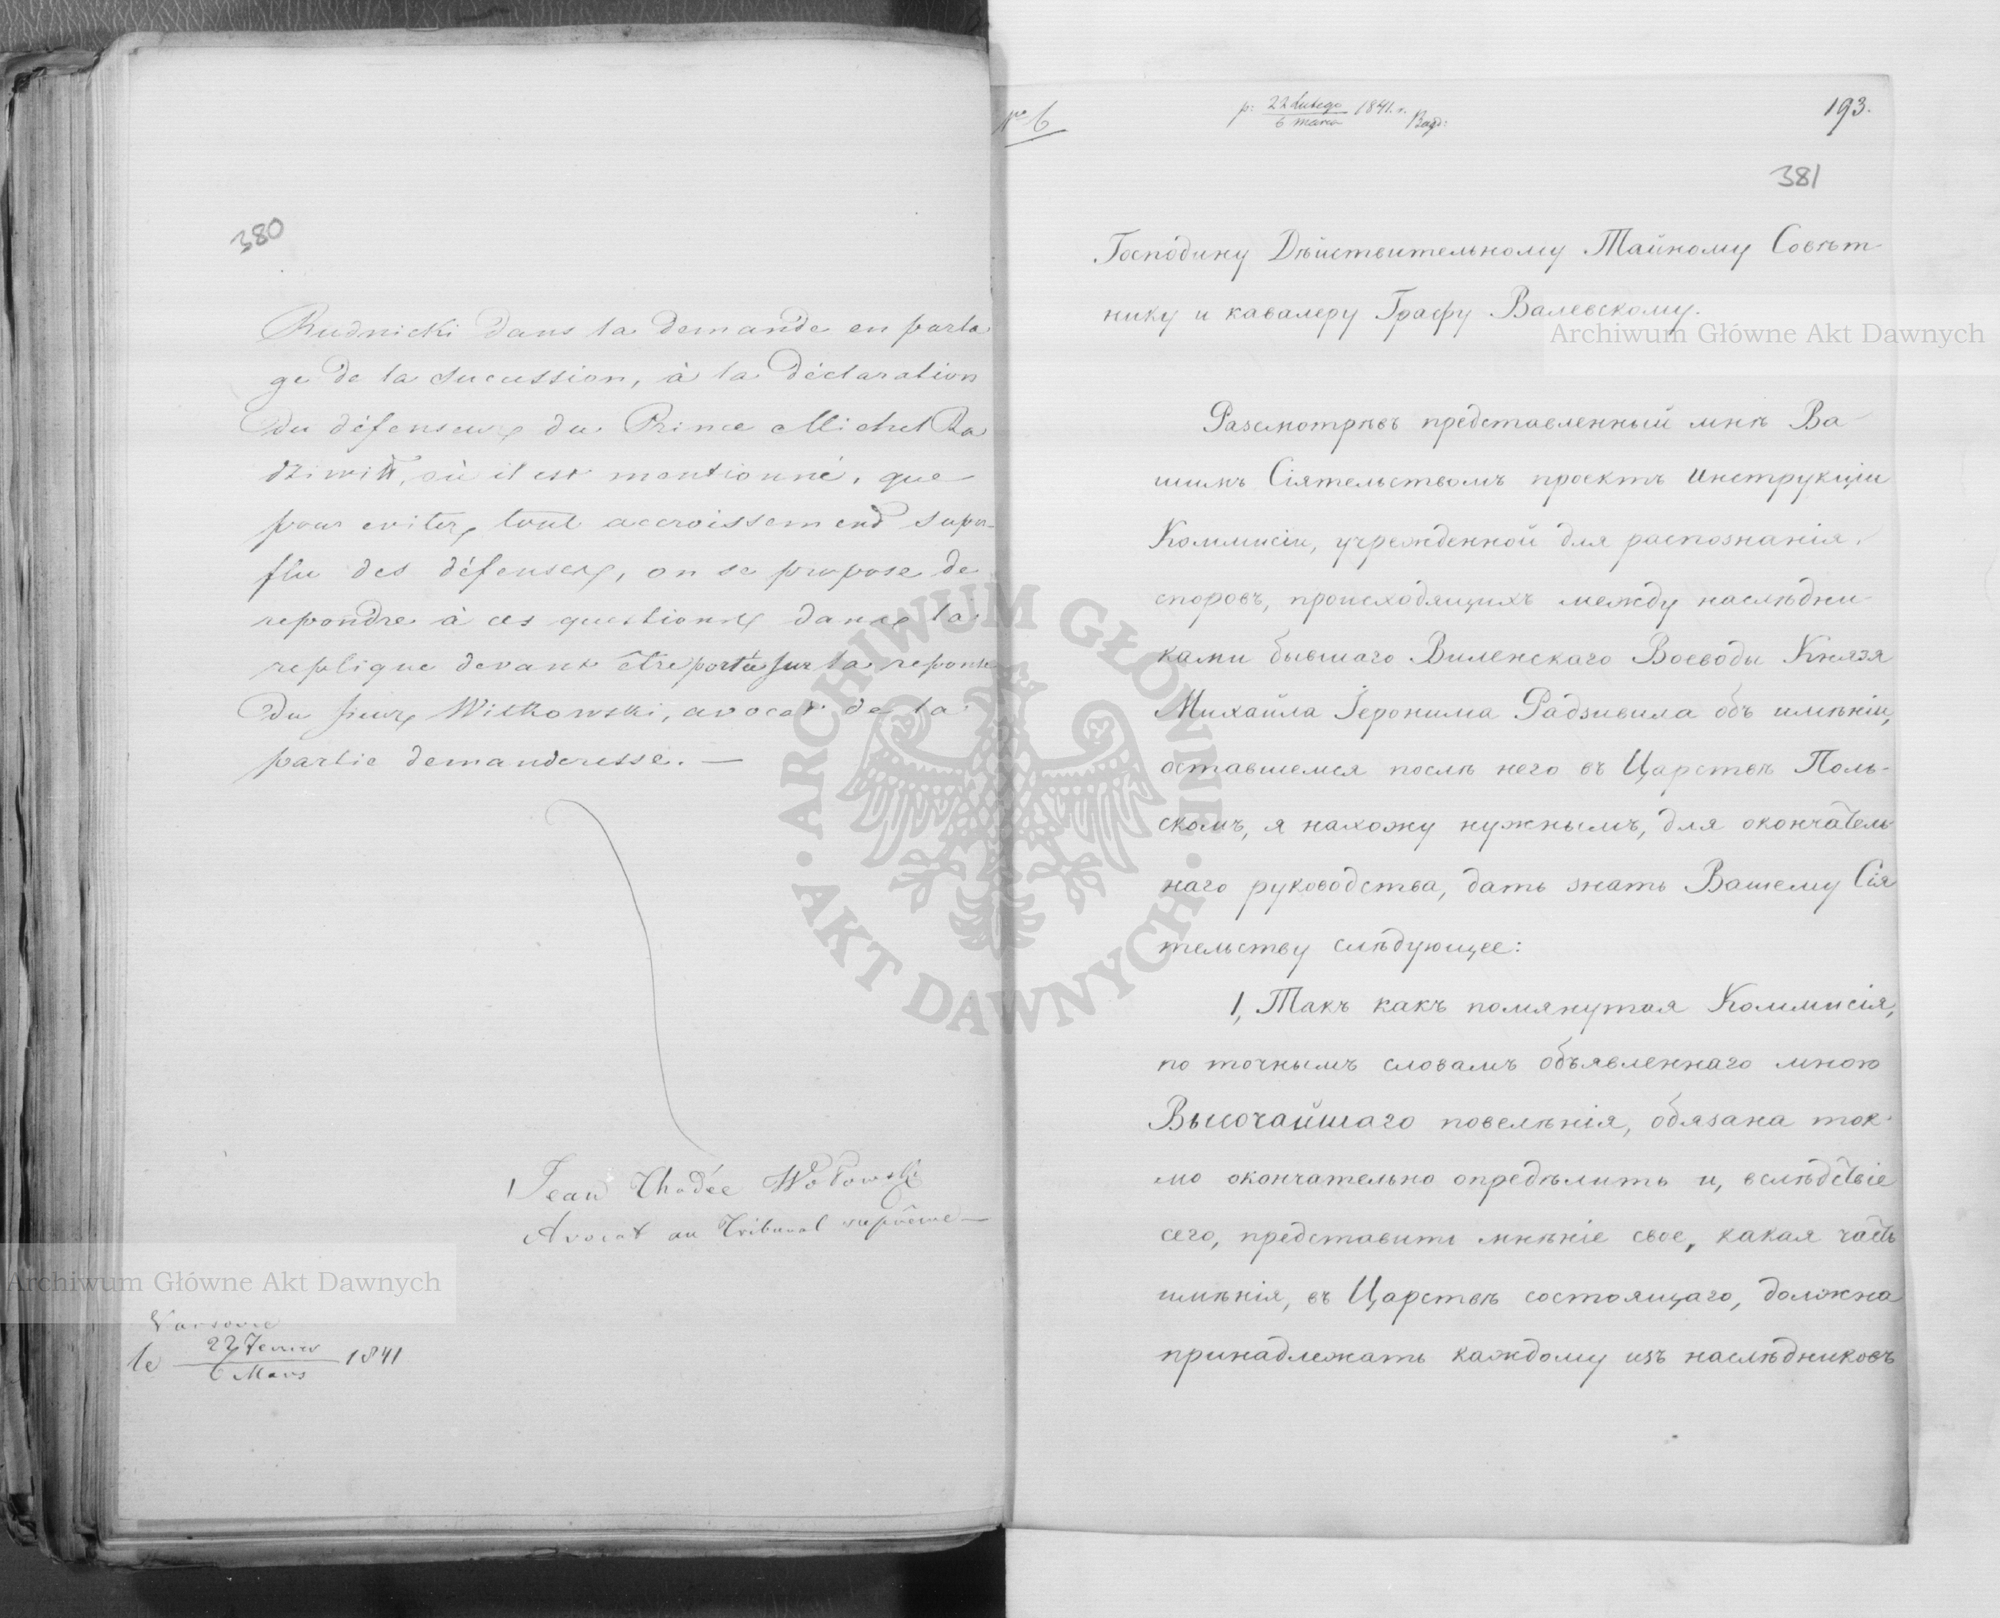 380
Rudnicki dans la demande en parta
ge de la sucussion, à la déclaration
du défenseur du Prince Michel Ra
dziwiłł, où il est mentionné, que
pour eviter tout accroissement super-
flu des défenses, on se propose de
repondre à ces questions dans la
replique devant être portée sur la reponse
du sieur Witkowski, avocat de la
partie demanderesse. —
Jean Thadée Wołowski
Avocat au Tribunal suprême —
Varsovie
le 22 Fevrier / 6 Mars 1841
No 6
p: 22 Lutego / 6 marca 1841. r.
193.
381
Господину Дѣйствительному Тайному Совѣт-
нику и кавалеру Графу Валевскому.
Разсмотрѣвъ представленный мнѣ Ва-
шимъ Сіятельствомъ проектъ Инструкціи
Коммисіи, учрежденной для распознанія
споровъ, происходящихъ между наслѣдни-
ками бывшаго Виленскаго Воеводы Князя
Михаила Іеронима Радзивила объ имѣніи,
оставшемся послѣ него въ Царствѣ Поль-
скомъ, я нахожу нужнымъ, для окончатель-
наго руководства, дать знать Вашему Сія
тельству слѣдующее:
1, Такъ какъ помянутая Коммисія,
по точнымъ словамъ объявленнаго мною
Высочайшаго повелѣнія, обязана ток-
мо окончательно опредѣлить и, вслѣдствіе
сего, представить мнѣніе свое, какая часть
имѣнія, въ Царствѣ состоящаго, должна
принадлежать каждому изъ наслѣдниковъ
Archiwum Główne Akt Dawnych
Archiwum Główne Akt Dawnych
ARCHIWUM GŁÓWNE · AKT DAWNYCH ·